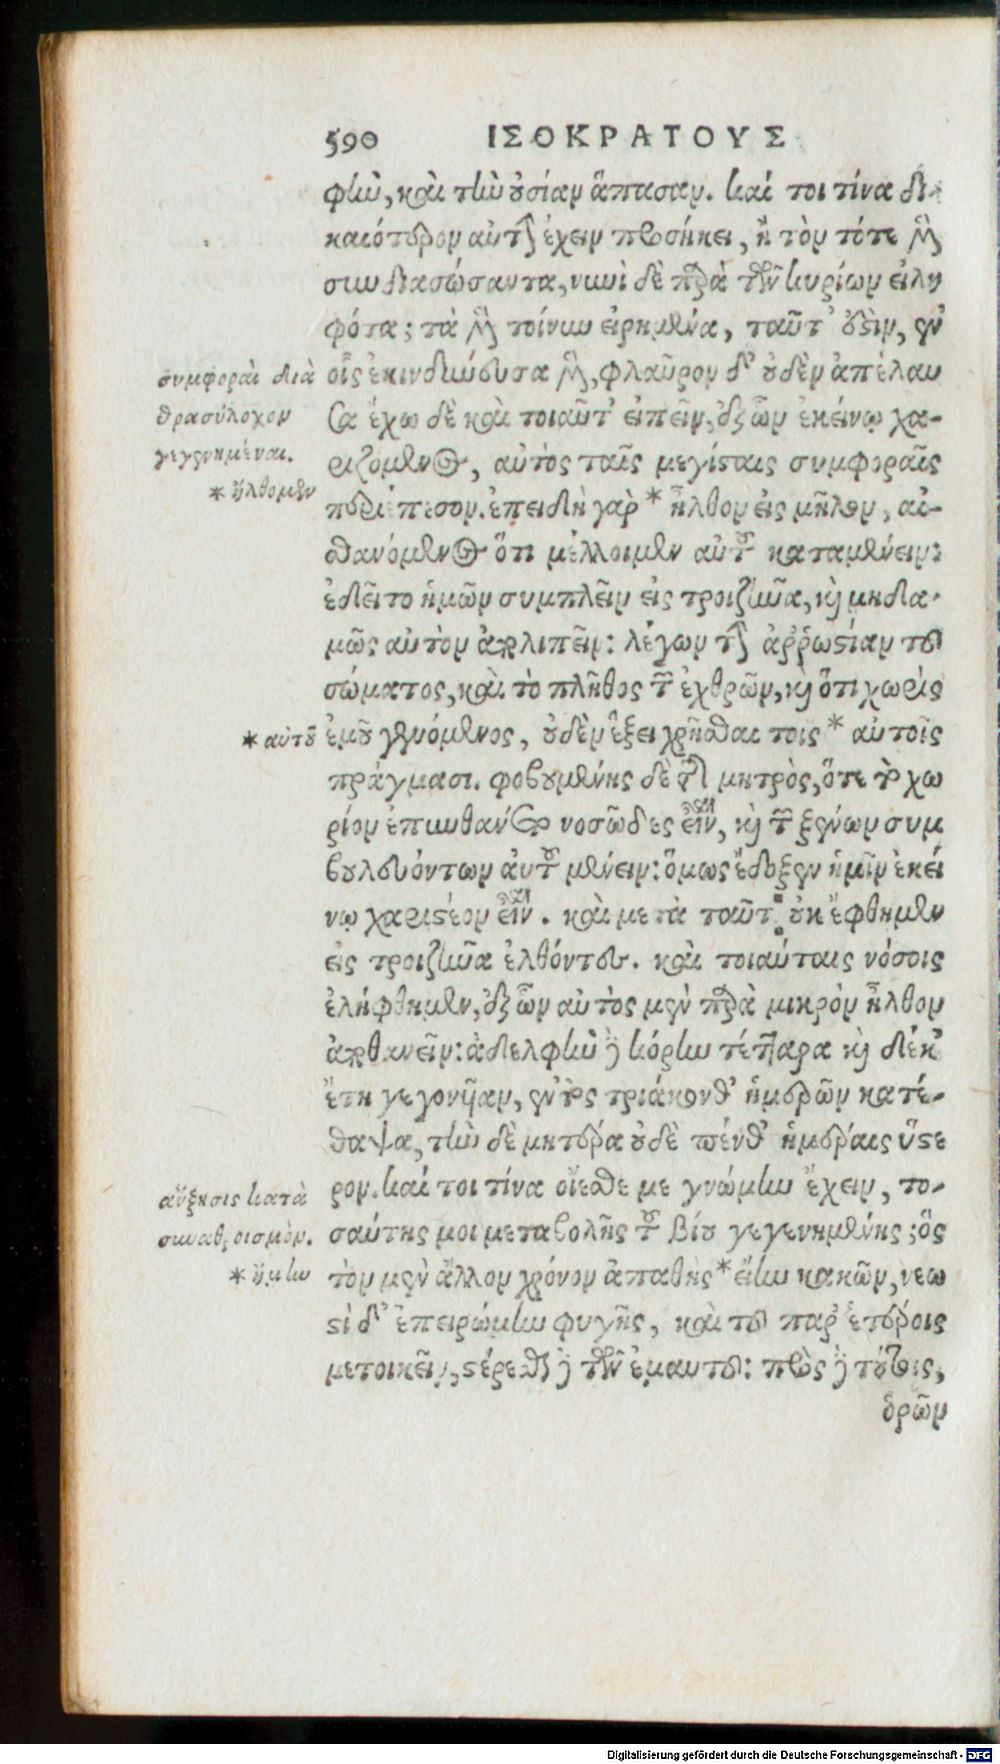 590 ΙΣΟΚΡΑΤΟΥΣ
φὴν, καὶ τὴν οὐσίαν ἅπασαν. καί τοι τίνα δι-
καιότερον αὐτὴν ἔχειν προσήκει, ἢ τὸν τότε μὲν
συνδιασώσαντα, νυνὶ δὲ παρὰ τῶν κυρίων εἰλη
φότα; τὰ μὲν τοίνυν εἰρημένα, ταῦτ' ἐστὶν, ἐν
οἷς ἐκινδύνευσα μὲν, φλαῦρον δ' οὐδὲν ἀπέλαυ
σα ἔχω δὲ καὶ τοιαῦτ' εἰπεῖν, ἐξ ὧν ἐκείνῳ χα-
ριζόμενος, αὐτὸς ταῖς μεγίσταις συμφοραῖς
περιέπεσον. ἐπειδὴ γὰρ * ἦλθον εἰς μῆλον, αἰ-
σθανόμενος ὅτι μέλλοιμεν αὐτοῦ καταμένειν:
ἐδεῖτο ἡμῶν συμπλεῖν εἰς τροιζῆνα, καὶ μηδα-
μῶς αὐτὸν ἀπολιπεῖν: λέγων τὴν ἀῤῥωστίαν τοῦ
σώματος, καὶ τὸ πλῆθος τῶν ἐχθρῶν, καὶ ὅτι χωρὶς
ἐμοῦ γενόμενος, οὐδὲν ἕξει χρῆσθαι τοις * αὐτοῖς
πράγμασι. φοβουμένης δὲ τῆς μητρὸς, ὅτι τὸ χω
ρίον ἐπυνθάνετο νοσῶδες εἶναι, καὶ τῶν ξένων συμ
βουλευόντων αὐτοῦ μένειν: ὅμως ἔδοξεν ἡμῖν ἐκεί
νῳ χαριστέον εἶναι. καὶ μετὰ ταῦτ' οὐκ ἔφθημεν
εἰς τροιζῆνα ἐλθόντες. καὶ τοιαύταις νόσοις
ἐλήφθημεν, ἐξ ὧν αὐτὸς μὲν παρὰ μικρὸν ἦλθον
ἀποθανεῖν: ἀδελφὴν δὲ κόρην τέτταρα καὶ δέκ'
ἔτη γεγονυῖαν, ἐντὸς τριάκονθ' ἡμερῶν κατέ-
θαψα, τὴν δὲ μητέρα οὐδὲ πένθ' ἡμέραις ὕστε
ρον. καί τοι τίνα οἴεσθέ με γνώμην ἔχειν, το-
σαύτης μοι μεταβολῆς τοῦ βίου γεγενημένης; ὃς
τὸν μὲν ἄλλον χρόνον ἀπαθὴς * εἴην κακῶν, νεω
στὶ δ' ἐπειρώμην φυγῆς, καὶ τοῦ παρ' ἑτέροις
μετοικεῖν, στέρεσθαι δὲ τῶν ἐμαυτοῦ: πρὸς δὲ τούτοις,
ὁρῶν
συμφοραὶ διὰ
θρασύλοχον
γεγενημέναι.
* ἤλθομεν
* αὐτοῦ
αὔξησις κατὰ
συναθροισμὸν.
* ἤμην
Digitalisierung gefördert durch die Deutsche Forschungsgemeinschaft - DFG